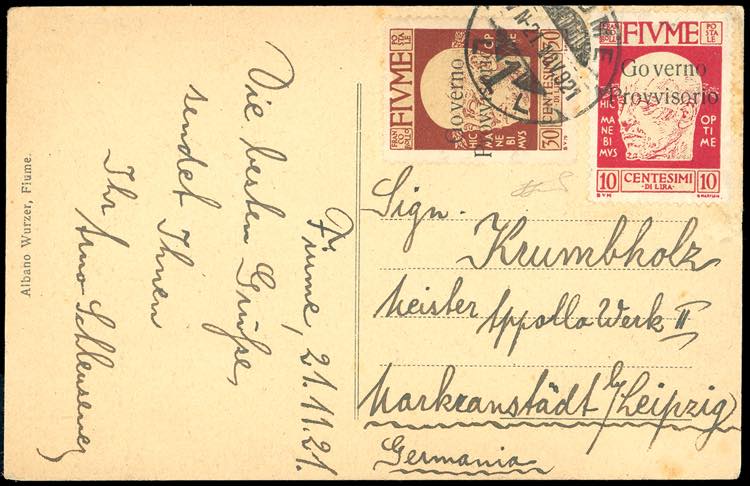 Albano Wurzer, Fiume.
Die besten Grüße,
sendet Ihnen
Ihr Arno
Fiume, 21.11.21.
FIVME
FRANCO BOLLO
POSTALE
Governo
Provvisorio
HIC MANEBIMVS
30 CENTESIMI 30
DI LIRA
FIUME
21 NOV. 921
FIVME
FRANCO BOLLO
POSTALE
Governo
Provvisorio
HIC MANEBIMVS
OPTIME
10 CENTESIMI 10
·DI LIRA·
Sign.
Krumbholz
Meister Appollo Werk II
Markranstädt b/Leipzig
Germania